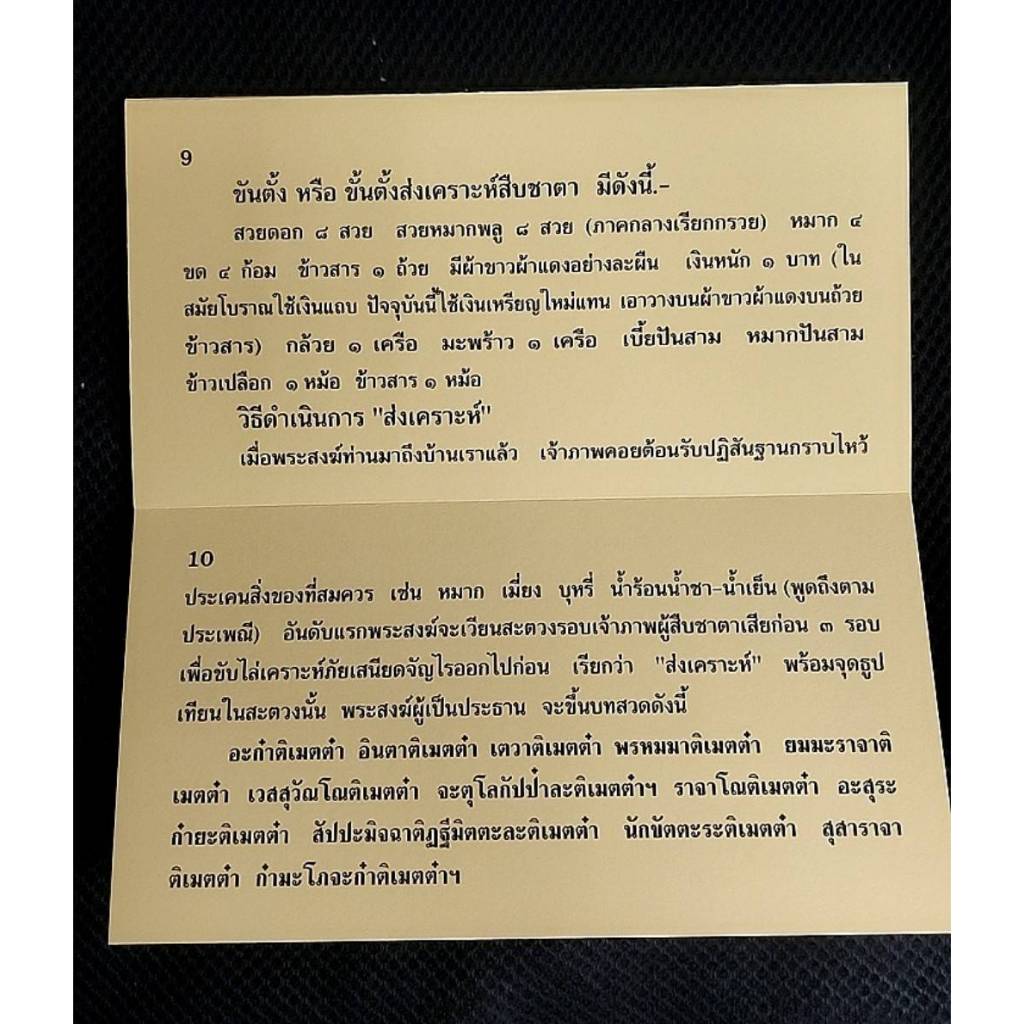 9
ขันตั้ง หรือ ขั้นตั้งส่งเคราะห์สืบชาตา มีดังนี้.-
สวยดอก ๘ สวย สวยหมากพลู ๘ สวย (ภาคกลางเรียกกรวย) หมาก ๔
ขด ๔ ก้อม ข้าวสาร ๑ ถ้วย มีผ้าขาวผ้าแดงอย่างละผืน เงินหนัก ๑ บาท (ใน
สมัยโบราณใช้เงินแถบ ปัจจุบันนี้ใช้เงินเหรียญใหม่แทน เอาวางบนผ้าขาวผ้าแดงบนถ้วย
ข้าวสาร) กล้วย ๑ เครือ มะพร้าว ๑ เครือ เบี้ยปันสาม หมากปันสาม
ข้าวเปลือก ๑ หม้อ ข้าวสาร ๑ หม้อ
วิธีดำเนินการ "ส่งเคราะห์"
เมื่อพระสงฆ์ท่านมาถึงบ้านเราแล้ว เจ้าภาพคอยต้อนรับปฏิสันฐานกราบไหว้
10
ประเคนสิ่งของที่สมควร เช่น หมาก เมี่ยง บุหรี่ น้ำร้อนน้ำชา-น้ำเย็น (พูดถึงตาม
ประเพณี) อันดับแรกพระสงฆ์จะเวียนสะตวงรอบเจ้าภาพผู้สืบชาตาเสียก่อน ๓ รอบ
เพื่อขับไล่เคราะห์ภัยเสนียดจัญไรออกไปก่อน เรียกว่า "ส่งเคราะห์" พร้อมจุดธูป
เทียนในสะตวงนั้น พระสงฆ์ผู้เป็นประธาน จะขึ้นบทสวดดังนี้
อะก๋าติเมตต๋า อินตาติเมตต๋า เตวาติเมตต๋า พรหมมาติเมตต๋า ยมมะราจาติ
เมตต๋า เวสสุวัณโณติเมตต๋า จะตุโลกัปป๋าละติเมตต๋าฯ ราจาโณติเมตต๋า อะสุระ
ก๋ายะติเมตต๋า สัปปะมิจฉาติฏฐีมิตตะละติเมตต๋า นักขัตตะระติเมตต๋า สุสาราจา
ติเมตต๋า ก๋ามะโภจะก๋าติเมตต๋าฯ